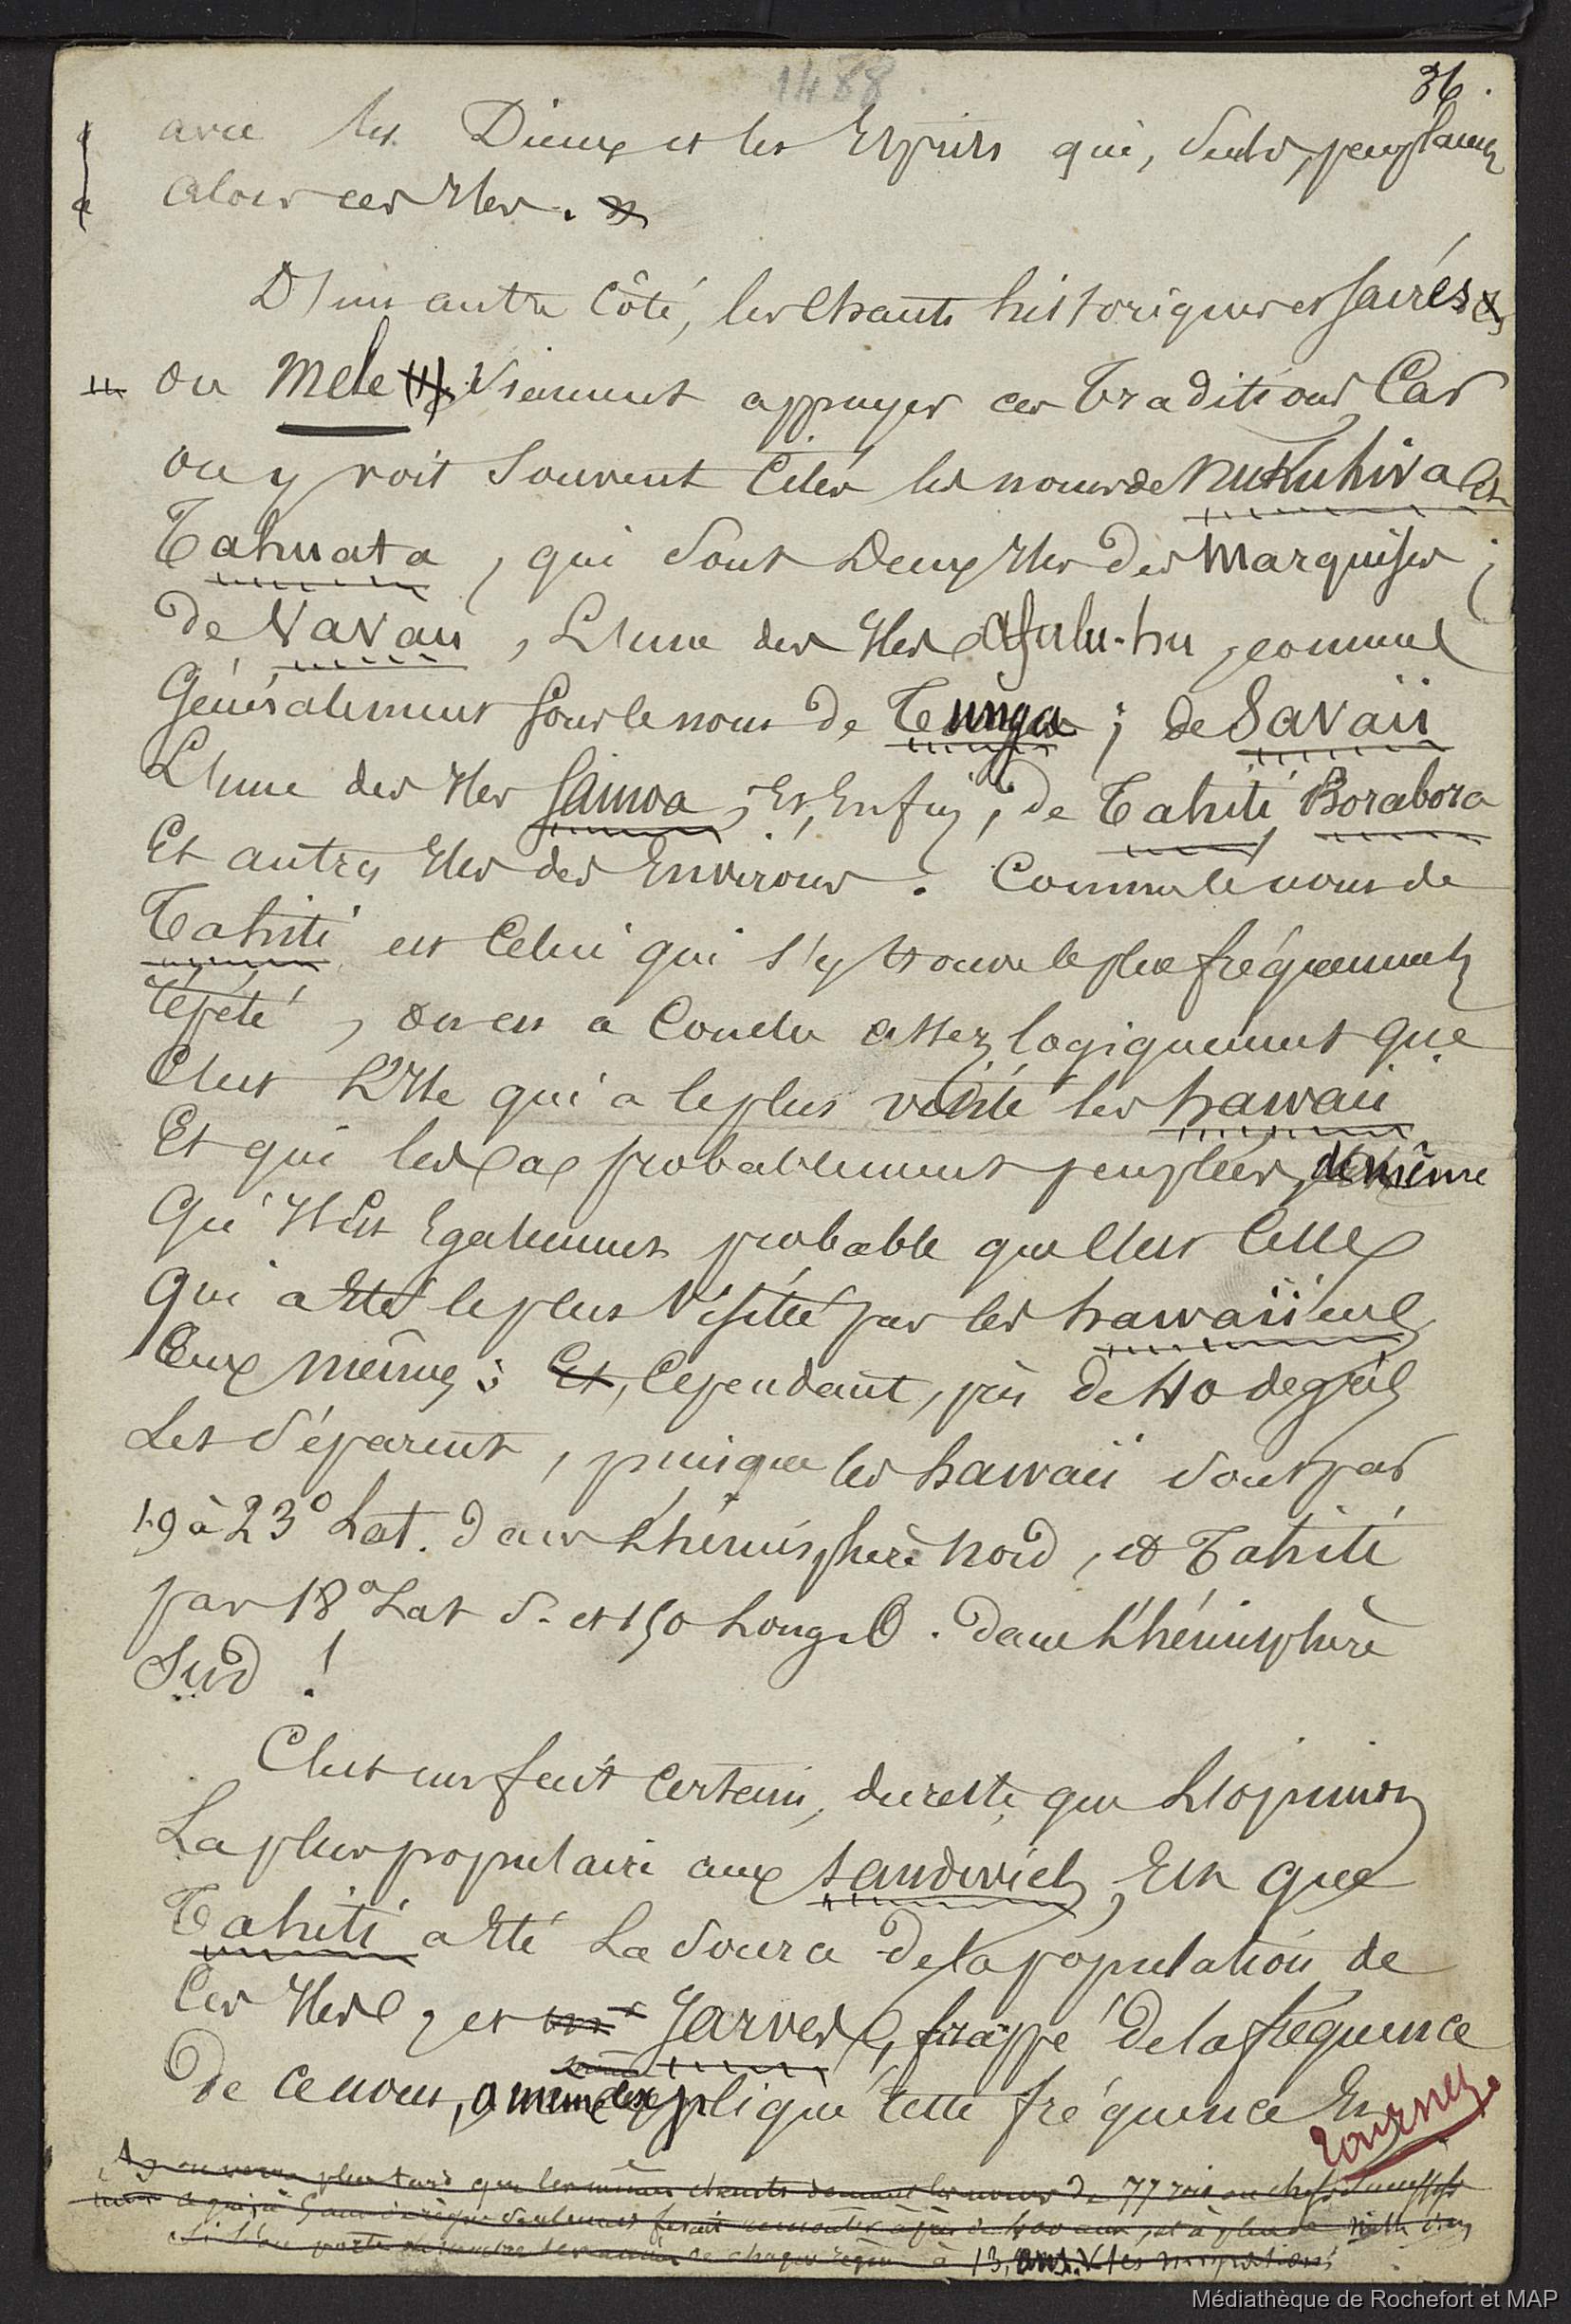 1488.
36.
avec les Dieux et les Esprits qui, seuls, peuplaient
alors ces Iles.
D'un autre Côté, les Chants historiques et sacrés
ou Mele (1) viennent appuyer ces traditions, Car
on y voit souvent Citer les noms de Nukuhiva et
Tahuata, qui sont Deux Iles des Marquises ;
de Vavau, L'une des Iles Afulu-hu, connue
Généralement sous le nom de Tunga ; de Savaii
L'une des Iles Samoa ; Et, Enfin, de Tahiti, Borabora
Et autres Iles des Environs. Comme le nom de
Tahiti est Celui qui s'y trouve le plus fréquemment
répété, on en a Conclu assez logiquement que
C'est L'Ile qui a le plus visité les hawaii
Et qui les a probablement peuplées, de même
Qu'Il est Egalement probable que C'est Celle
Qui a Eté le plus Visitée par les hawaiiens
Eux mêmes : Et, Cependant, près de 40 degrés
Les séparent, puisque les hawaii sont par
19 à 23° Lat. dans L'hémisphère nord, et Tahiti
par 18° Lat S. et 150 Long. O. dans L'hémisphère
Sud !
C'est un fait Certain, du reste, que L'opinion
La plus populaire aux Sandwich, Est que
Tahiti a Eté La source de la population de
Ces Iles, et Mr Jarves, frappé de la fréquence
De ce nom, a même expliqué cette fréquence En
tournez
(1) on verra plus tard que les mêmes chants donnent les noms de 77 rois ou chefs successifs
ce qui, à 5 ans de règne seulement ferait remonter à près de 400 ans, et à plus de mille ans
si l'on porte de chaque règne à 13 ans. V. les migrations
Médiathèque de Rochefort et MAP